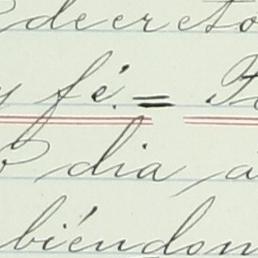 decreto
y fé. =
dia a
biéndom